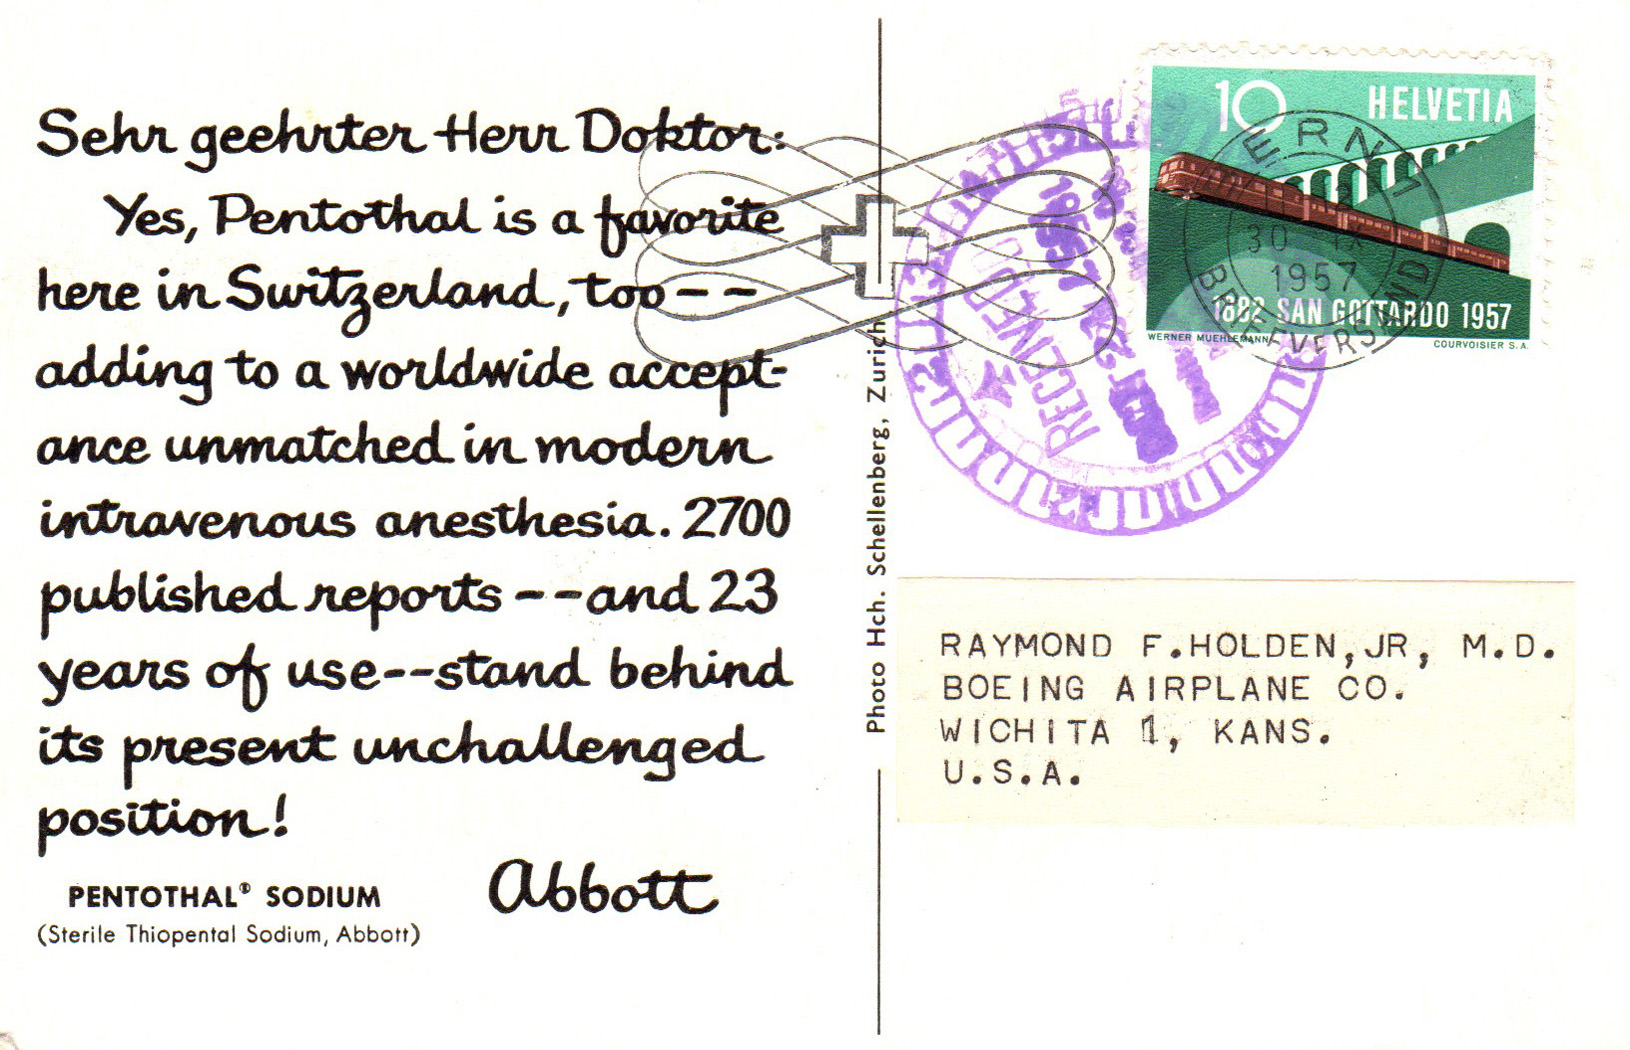 Sehr geehrter Herr Doktor:
Yes, Pentothal is a favorite
here in Switzerland, too--
adding to a worldwide accept-
ance unmatched in modern
intravenous anesthesia. 2700
published reports--and 23
years of use--stand behind
its present unchallenged
position!
Abbott
PENTOTHAL® SODIUM
(Sterile Thiopental Sodium, Abbott)
Photo Hch. Schellenberg, Zurich
10 HELVETIA
1882 SAN GOTTARDO 1957
WERNER MUEHLEMANN
COURVOISIER S.A.
BERN 1
30 IX
1957
BRIEFVERSAND
RECEIVED
1957
RAYMOND F.HOLDEN,JR, M.D.
BOEING AIRPLANE CO.
WICHITA 1, KANS.
U.S.A.